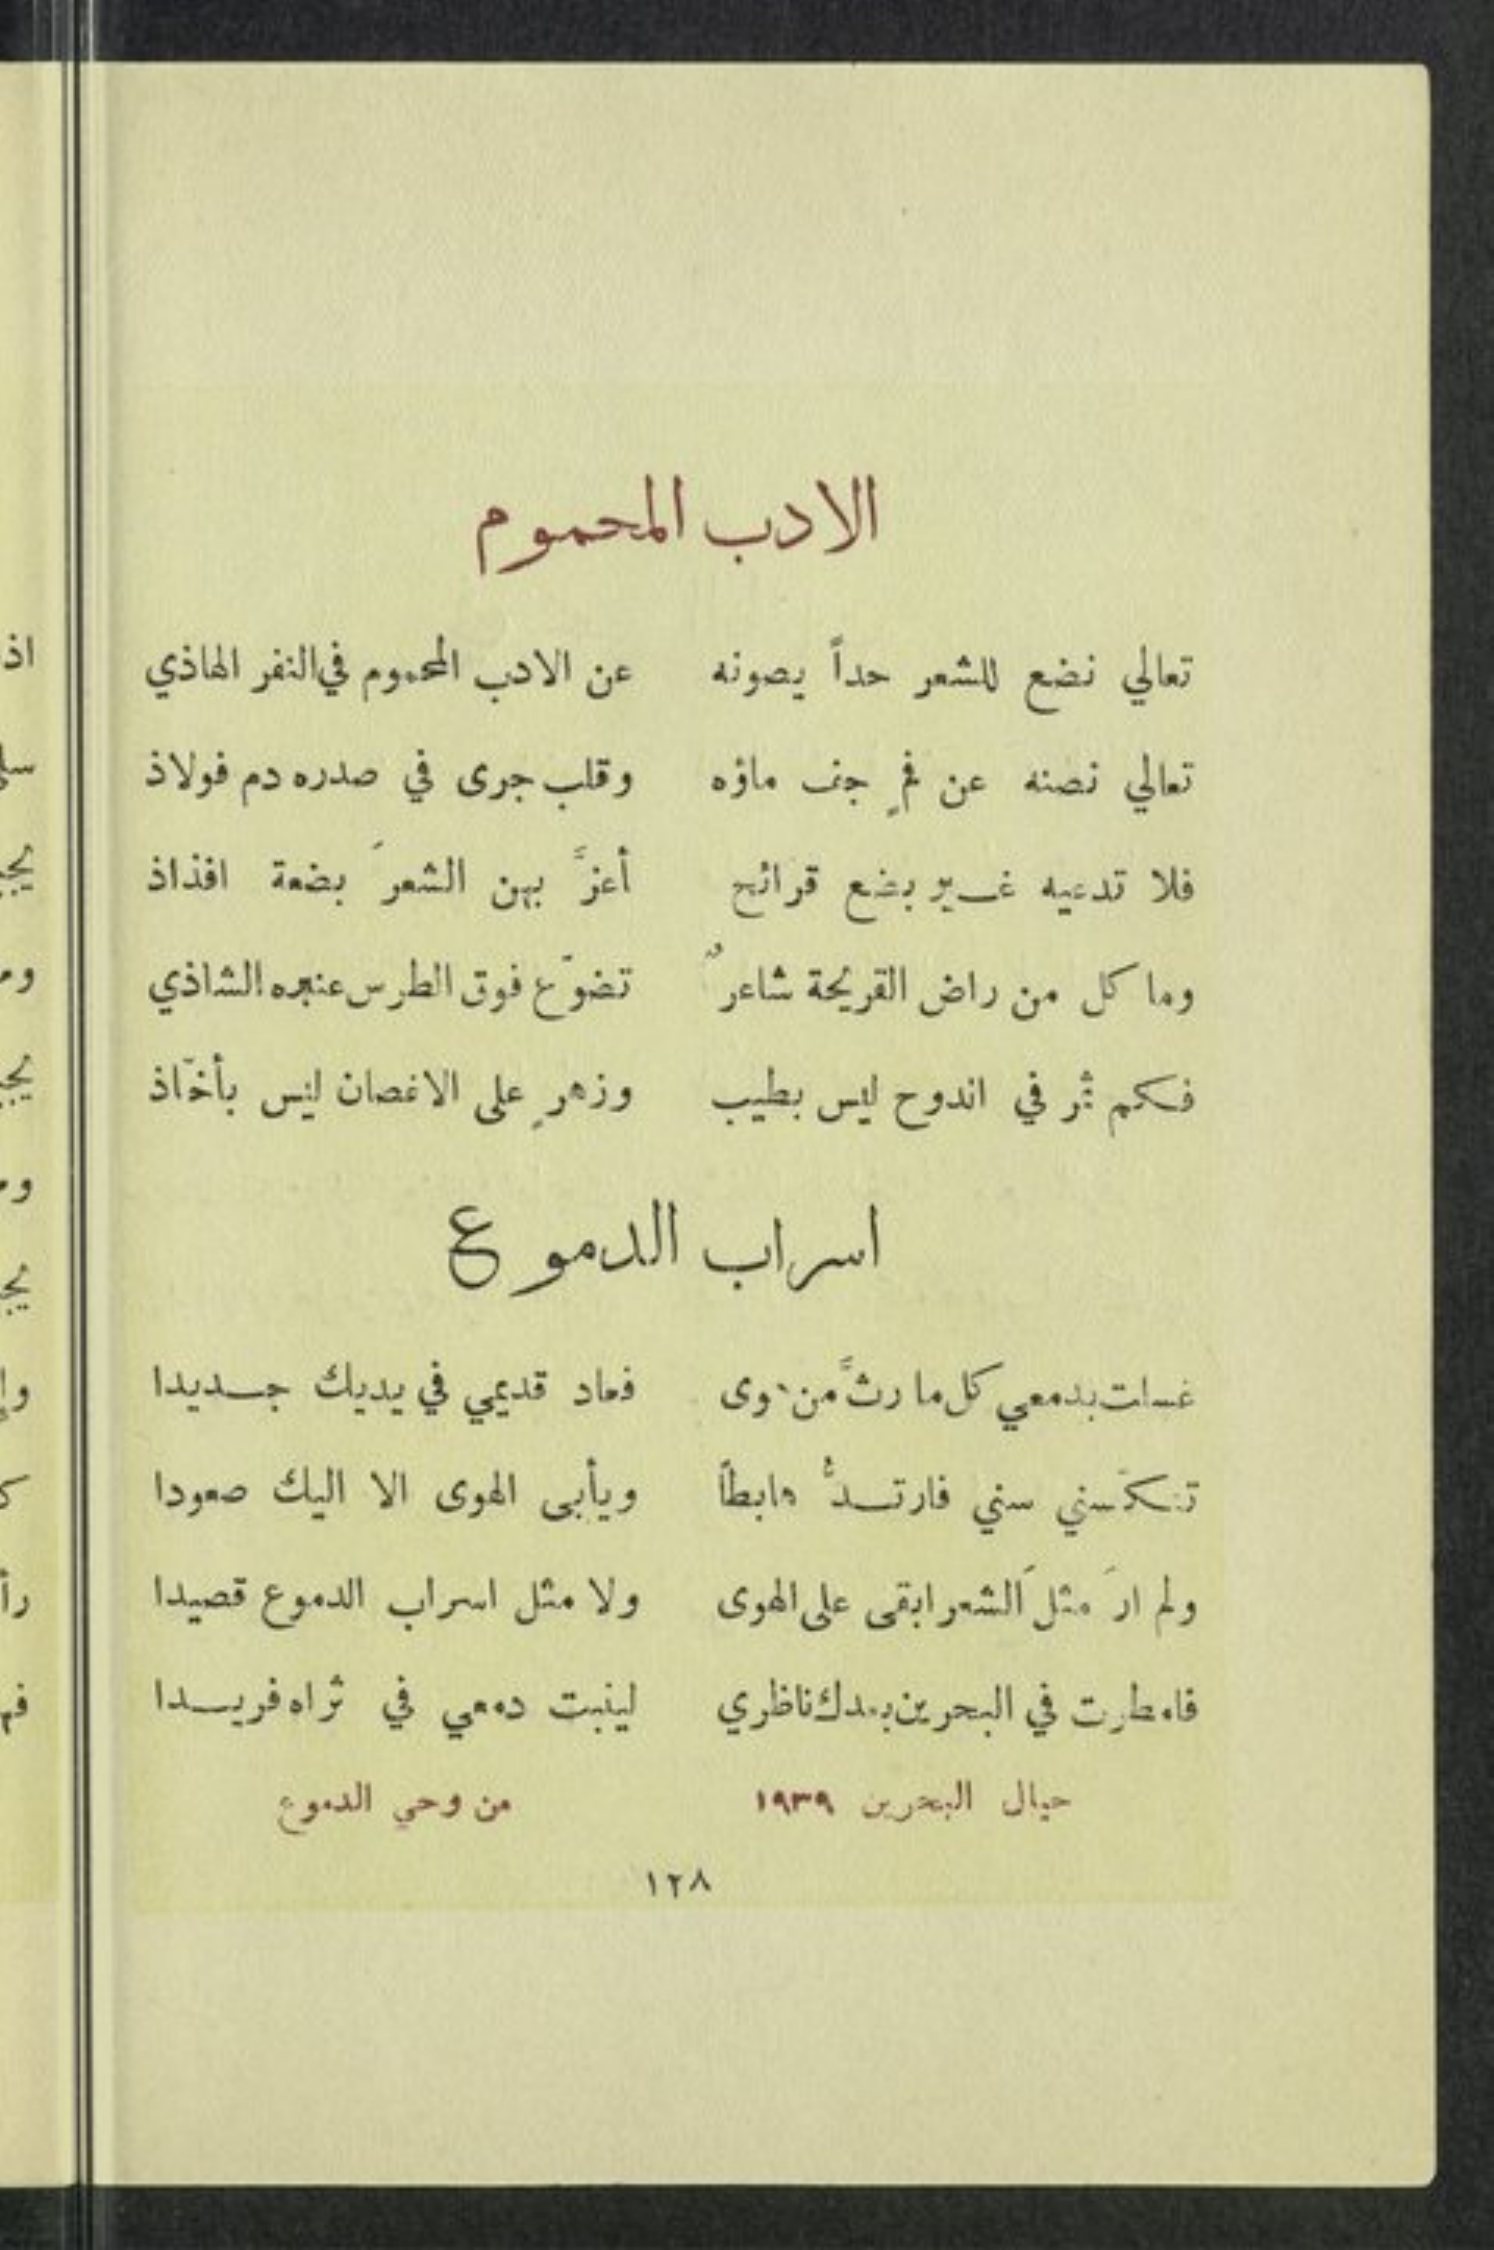 الادب المحموم
تعالي نضع للشعر حداً يصونه عن الادب المحموم في النفر الهاذي
تعالي نصنه عن فمٍ جف ماؤه وقلب جرى في صدره دم فولاذ
فلا تدعيه غير بضع قرائح أعزَّ بهن الشعرَ بضعة افذاذ
وما كل من راض القريحة شاعرٌ تضوّع فوق الطرس عنبره الشاذي
فكم ثمر في الدوح ليس بطيب وزهرٍ على الاغصان ليس بأخّاذ
اسراب الدموع
غسلت بدمعي كل ما رثَّ من هوى فعاد قديمي في يديك جديدا
تنكّسني سني فارتدُّ هابطاً ويأبى الهوى الا اليك صعودا
ولم ارَ مثلَ الشعر ابقى على الهوى ولا مثل اسراب الدموع قصيدا
فامطرت في البحرين بعدك ناظري لينبت دمعي في ثراه فريدا
حيال البحرين ١٩٣٩ من وحي الدموع
١٢٨